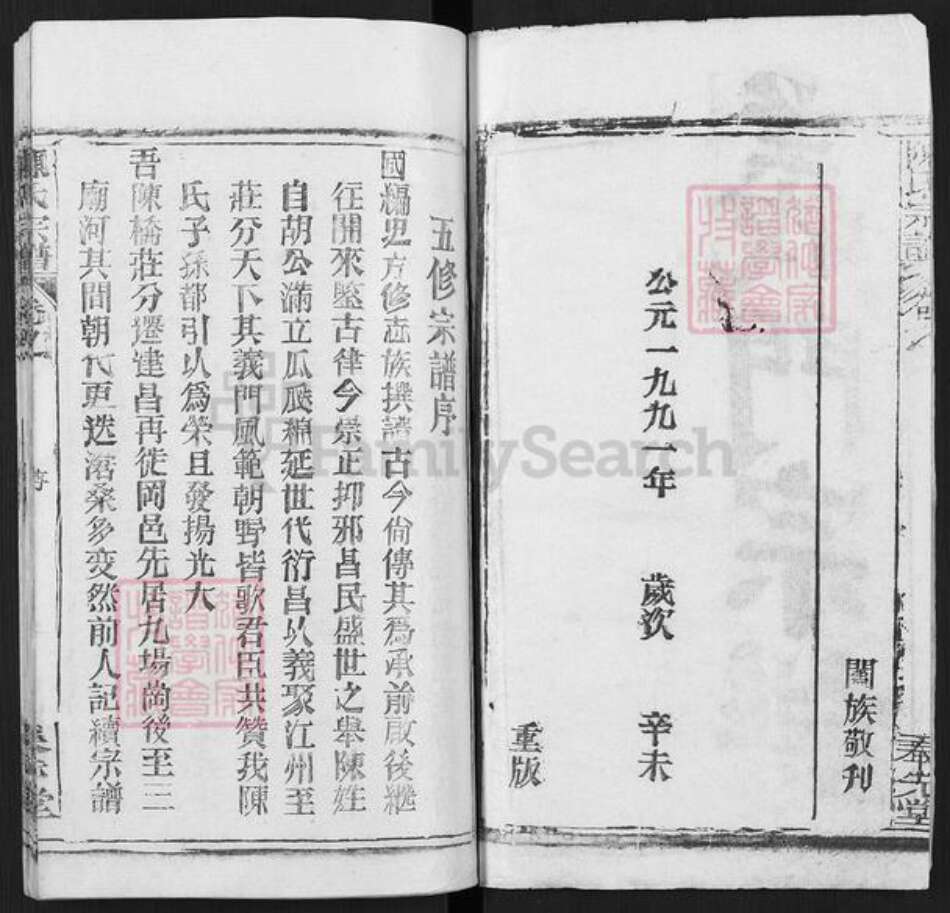 陳氏宗譜
奉先堂
闔族敬刊
公元一九九一年 歲次 辛未
重版
五修宗譜序
國編史方修志族撰譜古今尙傳其爲承前啟後繼
往開來鑒古律今崇正抑邪昌民盛世之舉陳姓
自胡公滿立瓜瓞綿延世代衍昌以義聚江州至
莊分天下其義門風範朝野皆歌君臣共贊我陳
氏子孫都引以爲榮且發揚光大
吾陳橋莊分遷建昌再徙岡邑先居九場崗後至三
廟河其間朝代更迭滄桑多变然前人記續宗譜
陳氏宗譜
序
奉先堂
FamilySearch